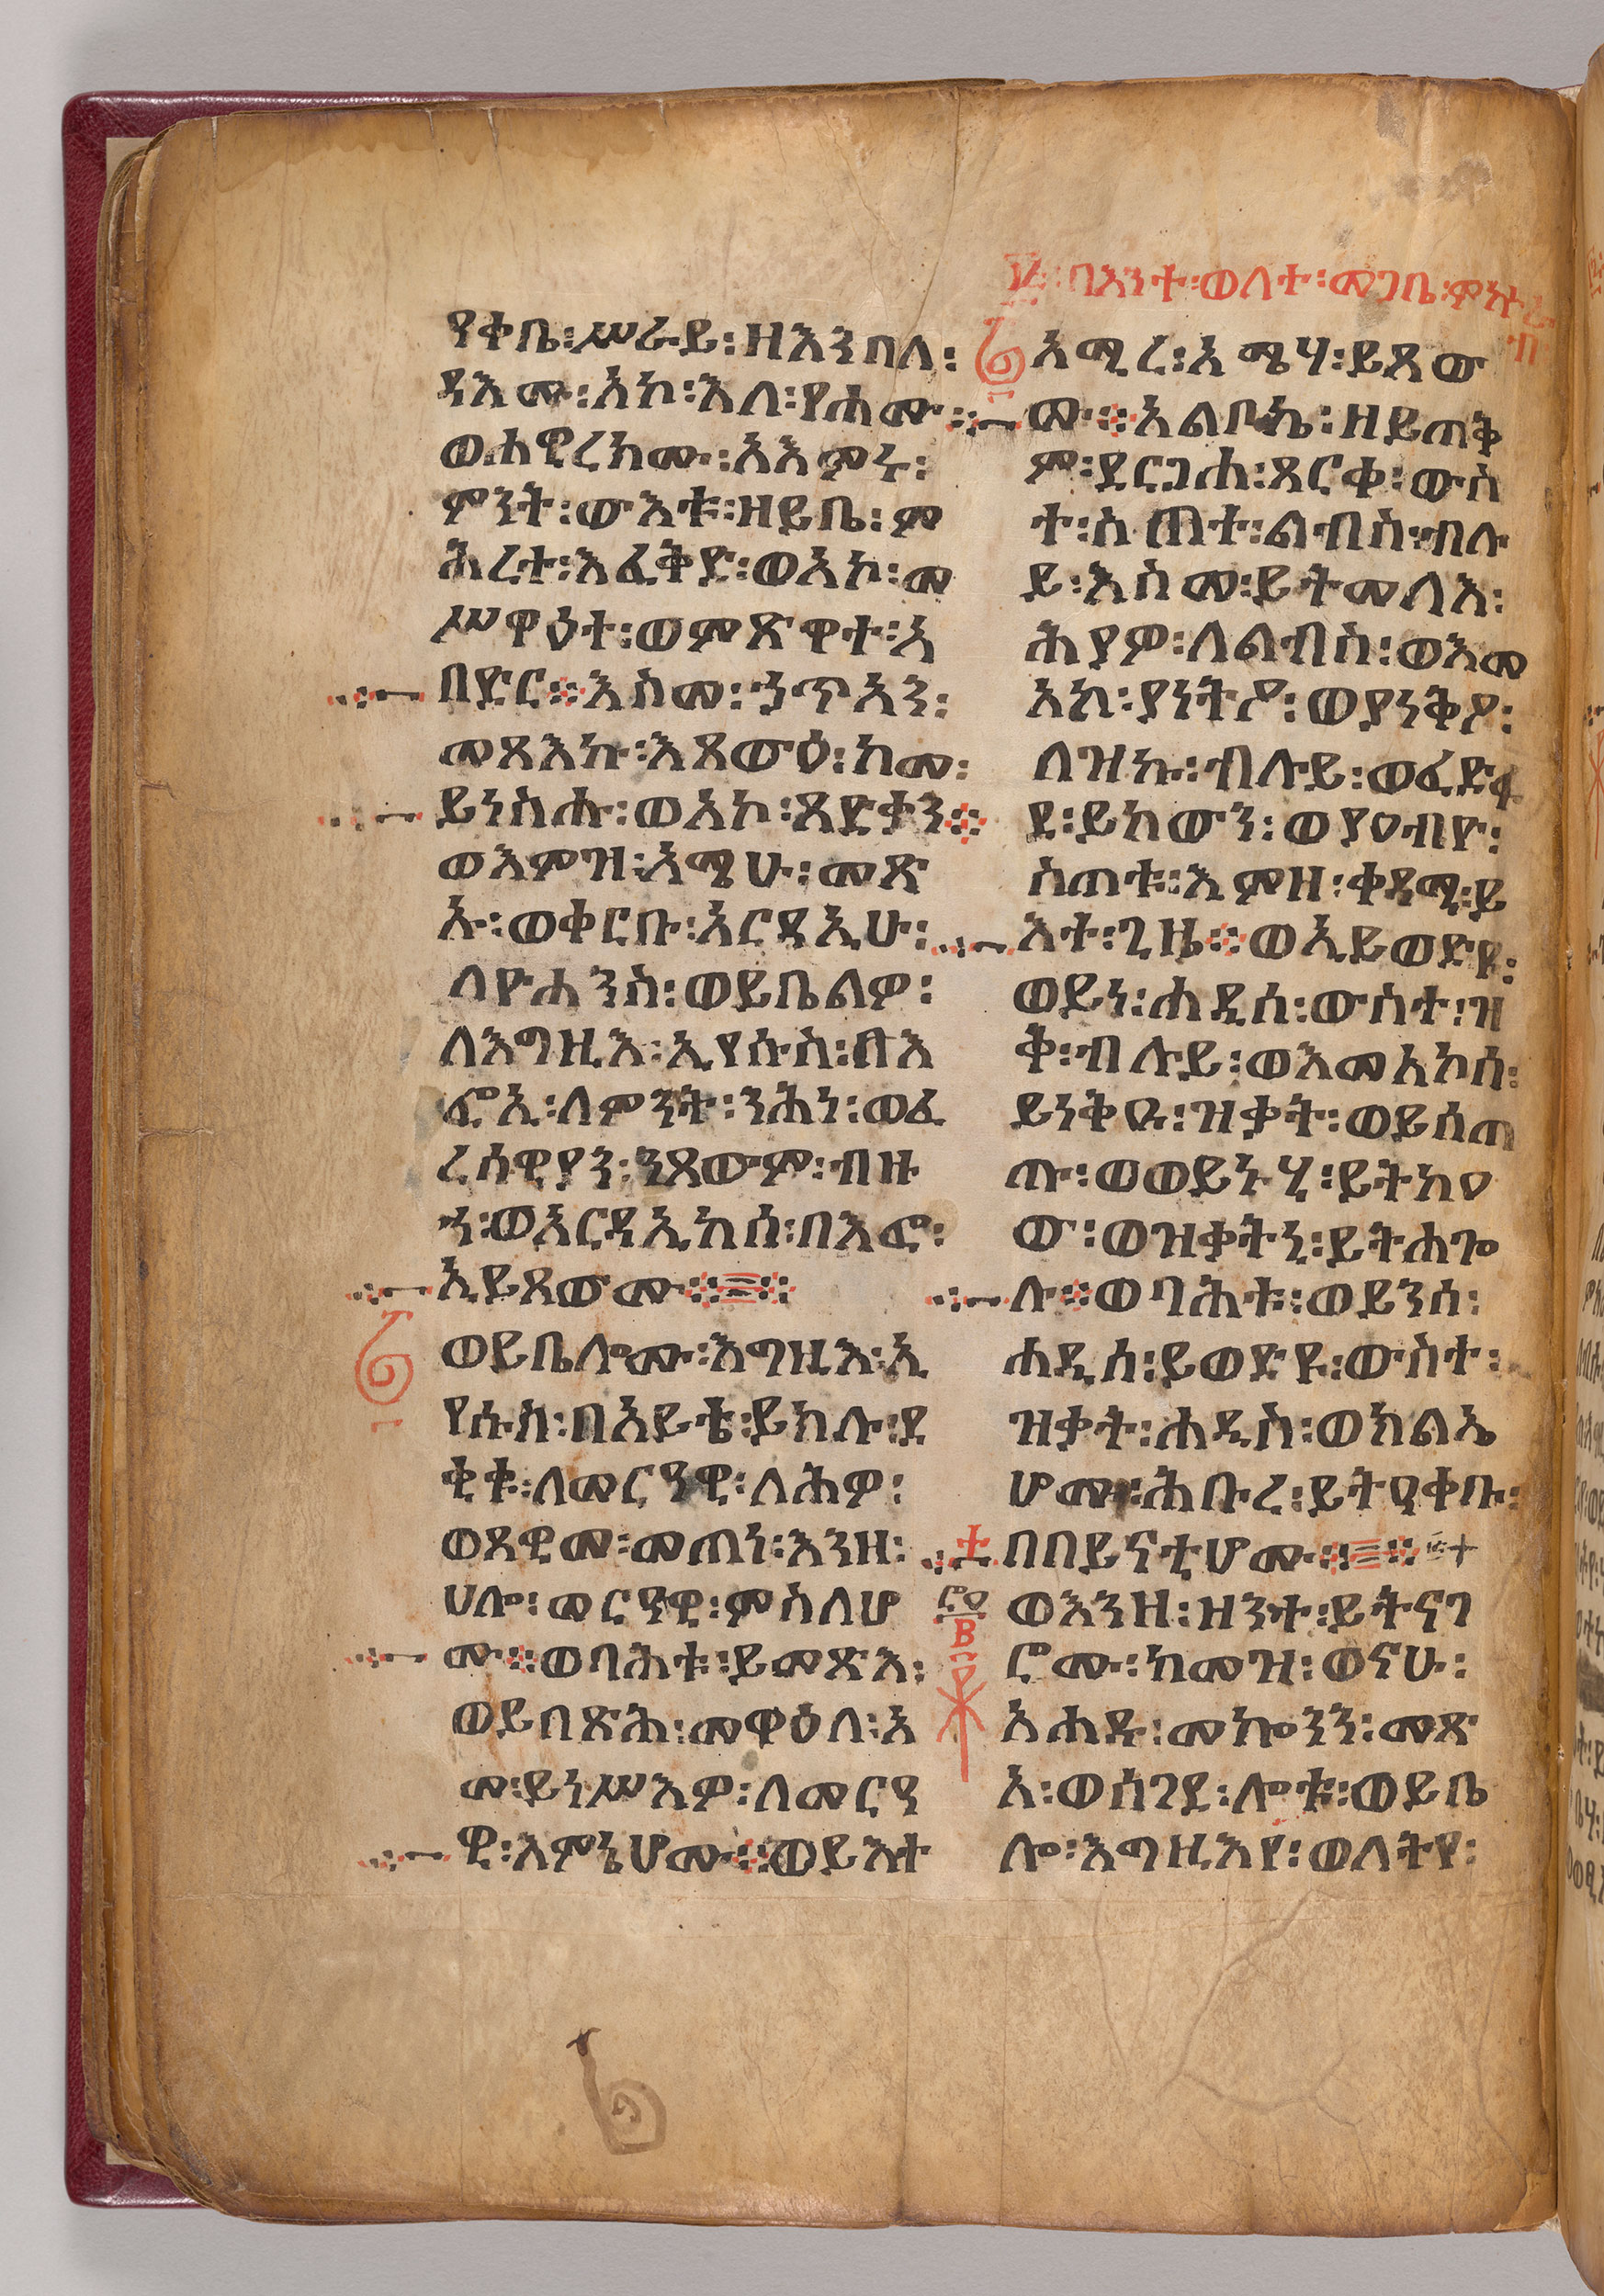 የቀቤ፡ሥራይ፡ዘእንበለ፡
ዳእሙ፡አኮ፡እለ፡የሐሙ፡
ወሐዊረክሙ፡አእምሩ፡
ምንት፡ውእቱ፡ዘይቤ፡ም
ሕረተ፡እፈቅድ፡ወአኮ፡መ
ሥዋዕተ፡ወምጽዋተ፡አ
በድር፨እስመ፡ኃጥአን፡
መጻእኩ፡እጸውዕ፡ከመ፡
ይነስሑ፡ወአኮ፡ጻድቃን፨
ወእምዝ፡አሜሁ፡መጽ
ኡ፡ወቀርቡ፡አርዳኢሁ፡
ለዮሐንስ፡ወይቤልዎ፡
ለእግዚእ፡ኢየሱስ፡በእ
ፎኢ፡ለምንት፡ንሕነ፡ወፈ
ረሰዊያን፡ንጸውም፡ብዙ
ኃ፡ወአርዳኢከሰ፡በእፎ፡
ኢይጸውሙ፨
ወይቤሎሙ፡እግዚእ፡ኢ
የሱስ፡በአይቴ፡ይክሉ፡ደ
ቂቁ፡ለመርዓዊ፡ለሕዎ፡
ወጸዊመ፡መጠነ፡እንዘ፡
ሀሎ፡መርዓዊ፡ምስለሆ
ሙ፨ወባሕቱ፡ይመጽእ፡
ወይበጽሕ፡መዋዕለ፡አ
መ፡ይነሥእዎ፡ለመርዓ
ዊ፡እምኔሆሙ፨ወይእተ
፲፬፡በእንተ፡ወለተ፡መገቤ፡ምኵራ
ብ
አሚረ፡አሜሃ፡ይጸው
ሙ፨አልቦኬ፡ዘይጠቅ
ም፡ደርጋሐ፡ጸርቀ፡ውስ
ተ፡ስጠተ፡ልብስ፡ብሉ
ይ፡እስመ፡ይትመላእ፡
ሕያዎ፡ለልብስ፡ወእመ
አከ፡ያነትዖ፡ወያነቅዖ፡
ለዝኩ፡ብሉይ፡ወፈድፋ
ደ፡ይከውን፡ወያዐብዮ፡
ስጠቱ፡እምዘ፡ቀዳሚ፡ይ
እተ፡ጊዜ፨ወኢይወድዩ፡
ወይነ፡ሐዲሰ፡ውስተ፡ዝ
ቅ፡ብሉይ፡ወእመአኮሰ፡
ይነቅዑ፡ዝቃት፡ወይሰጠ
ጡ፡ወወይኑሂ፡ይትከዐ
ው፡ወዝቃትኒ፡ይትሐጐ
ሉ፨ወባሕቱ፡ወይንሰ፡
ሐዲሰ፡ይወድዩ፡ውስተ፡
ዝቃት፡ሐዲስ፡ወክልኤ
ሆሙ፡ሕቡረ፡ይትዐቀቡ፡
በበይናቲሆሙ፨
ወእንዘ፡ዘንተ፡ይትናገ
ሮሙ፡ከመዝ፡ወናሁ፡
አሐዱ፡መኰንን፡መጽ
አ፡ወሰገደ፡ሎቱ፡ወይቤ
ሎ፡እግዚእየ፡ወለትየ፡